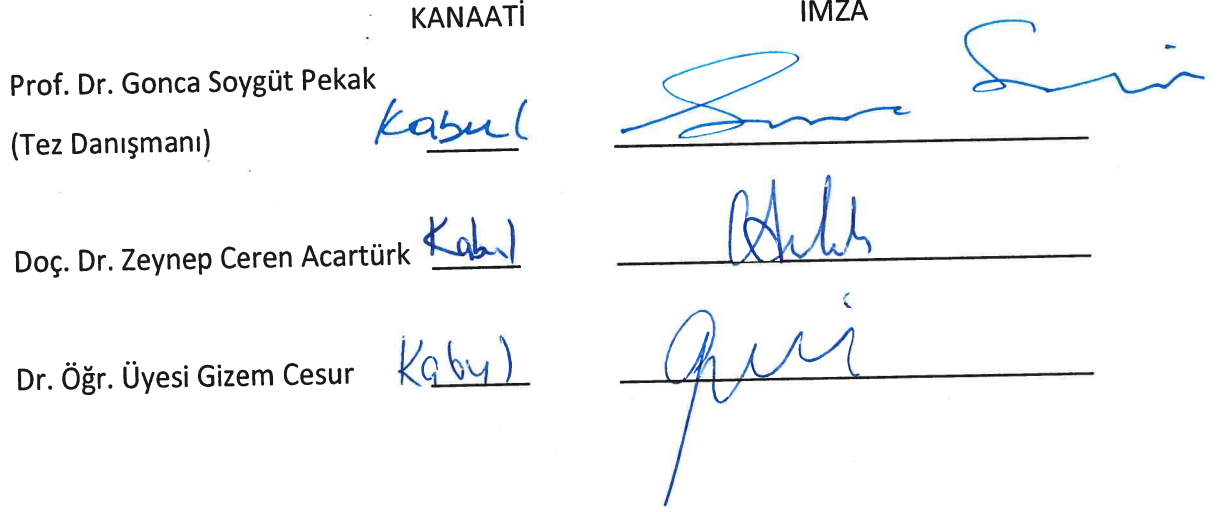 KANAATİ İMZA
Prof. Dr. Gonca Soygüt Pekak
(Tez Danışmanı) Kabul
Doç. Dr. Zeynep Ceren Acartürk Kabul
Dr. Öğr. Üyesi Gizem Cesur Kabul